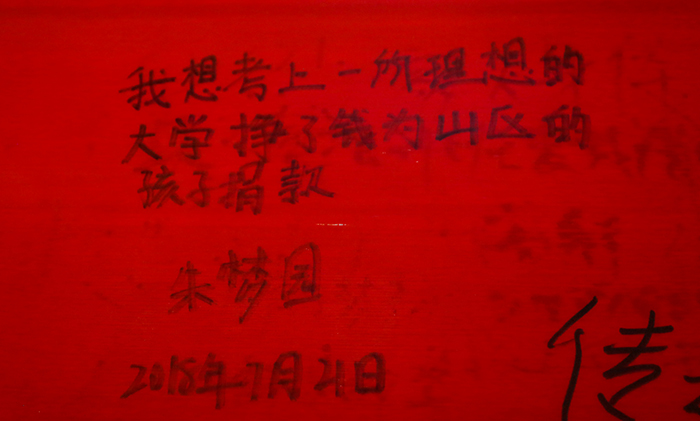 我想考上一所理想的
大学挣了钱为山区的
孩子捐款
朱梦园
2015年7月21日
传